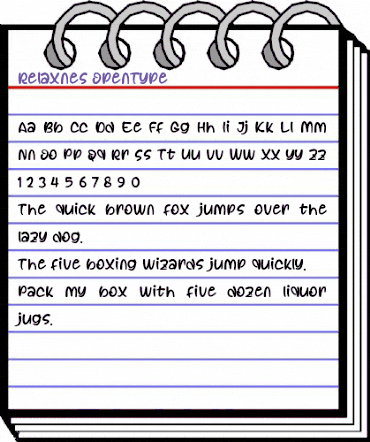 Relaxnes OpenType
Aa Bb Cc Dd Ee Ff Gg Hh Ii Jj Kk Ll Mm
Nn Oo Pp Qq Rr Ss Tt Uu Vv Ww Xx Yy Zz
1 2 3 4 5 6 7 8 9 0
The quick brown fox jumps over the
lazy dog.
The five boxing wizards jump quickly.
Pack my box with five dozen liquor
jugs.